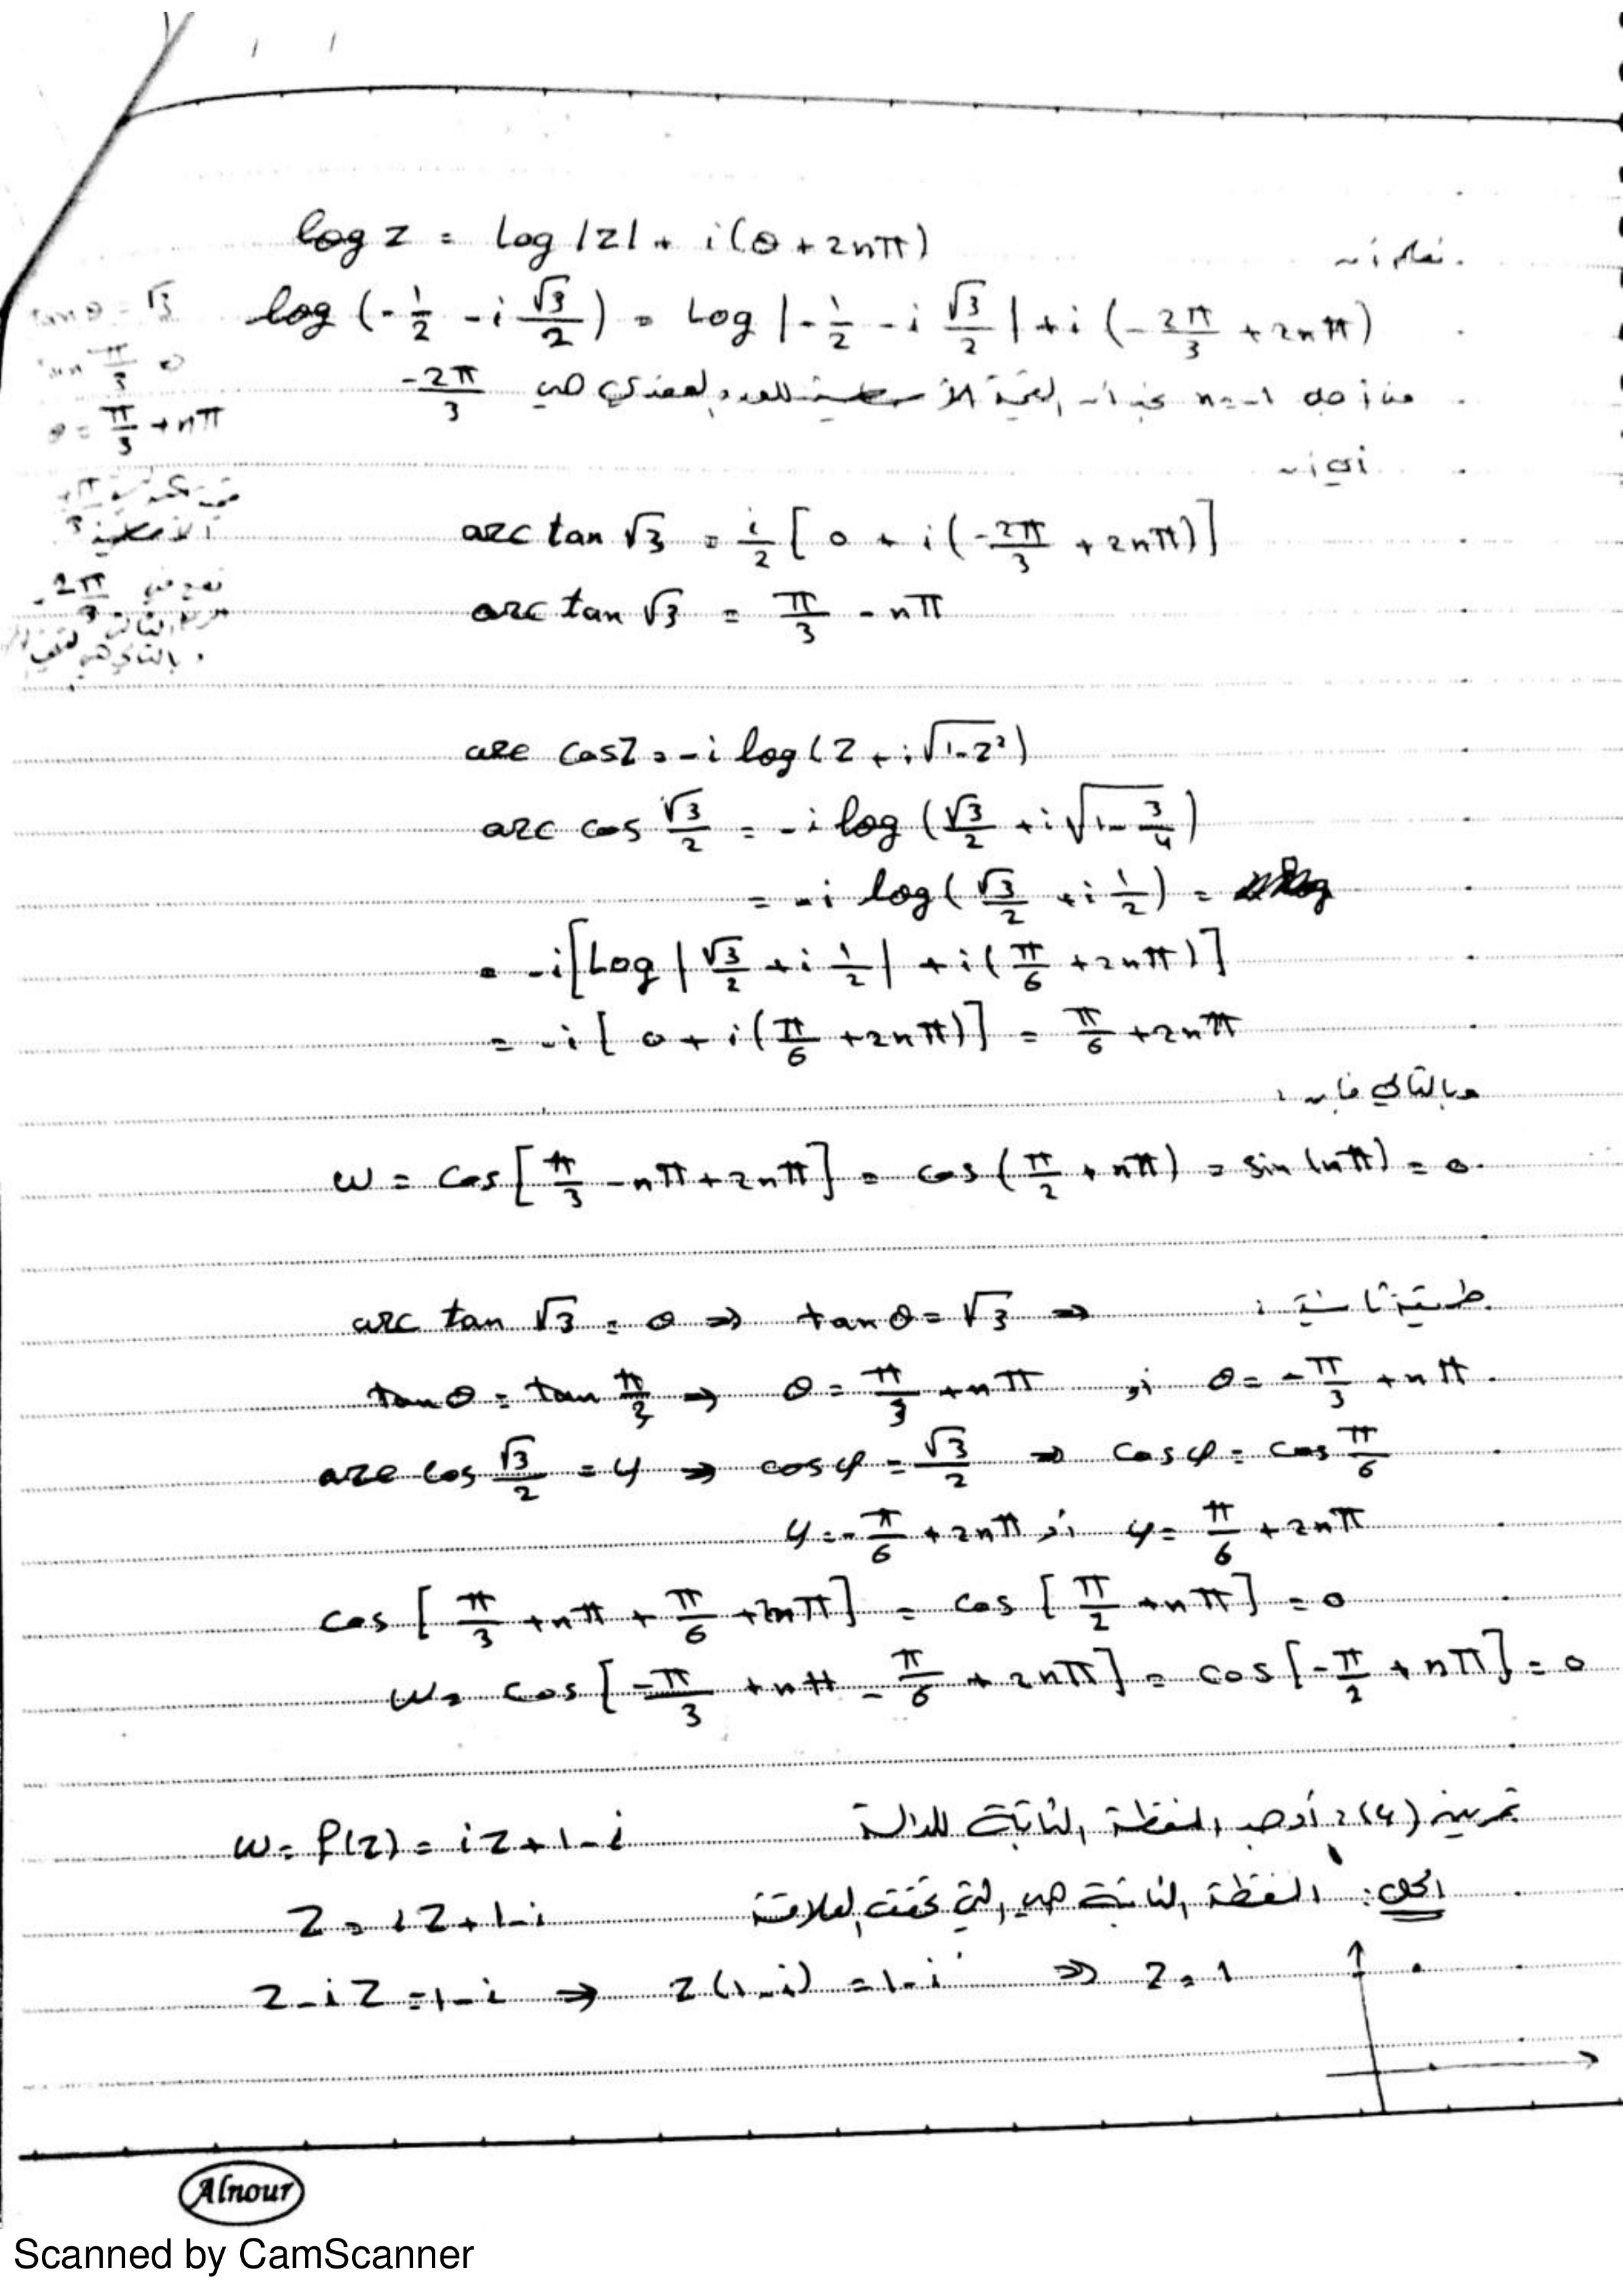 نعلم أن log z = Log |z| + i(θ + 2nπ)
log (-1/2 - i √3/2) = Log |-1/2 - i √3/2| + i (-2π/3 + 2nπ)
n=-1 هي -2π/3
θ = π/3 + nπ
أي أن
arc tan √3 = i/2 [0 + i(-2π/3 + 2nπ)]
arc tan √3 = π/3 - nπ
arc cos z = -i log (z + i√(1-z²))
arc cos √3/2 = -i log (√3/2 + i√(1 - 3/4))
= -i log (√3/2 + i 1/2) =
= -i[Log |√3/2 + i 1/2| + i(π/6 + 2nπ)]
= -i [0 + i(π/6 + 2nπ)] = π/6 + 2nπ
وبالتالي فإن :
w = cos [π/3 - nπ + 2nπ] = cos (π/2 + nπ) = sin (nπ) = 0
طريقة ثانية :
arc tan √3 = θ ⇒ tan θ = √3 ⇒
tan θ = tan π/3 ⇒ θ = π/3 + nπ أو θ = -π/3 + nπ
arc cos √3/2 = φ ⇒ cos φ = √3/2 ⇒ cos φ = cos π/6
φ = -π/6 + 2nπ أو φ = π/6 + 2nπ
cos [π/3 + nπ + π/6 + 2nπ] = cos [π/2 + nπ] = 0
w = cos [-π/3 + nπ - π/6 + 2nπ] = cos [-π/2 + nπ] = 0
تمرين (4): أوجد النقطة الثابتة للدالة w = f(z) = iz + 1 - i
الحل: النقطة الثابتة هي التي تحقق العلاقة z = iz + 1 - i
z - iz = 1 - i ⇒ z(1 - i) = 1 - i ⇒ z = 1
Alnour
Scanned by CamScanner